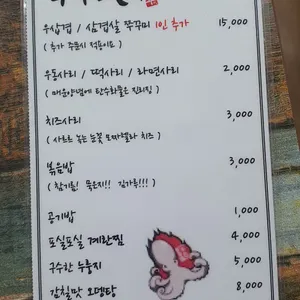 우삼겹 / 삼겹살 쭈꾸미 1인 추가 15,000
( 추가 주문시 적용이요 )
우동사리 / 떡사리 / 라면사리 2,000
치즈사리 3,000
( 사르르 녹는 눈꽃 모짜렐라 치즈 )
볶음밥 3,000
( 참기름! 묵은지!! 김가루!!! )
공기밥 1,000
포실포실 계란찜 4,000
구수한 누룽지 5,000
감칠맛 오뎅탕 8,000